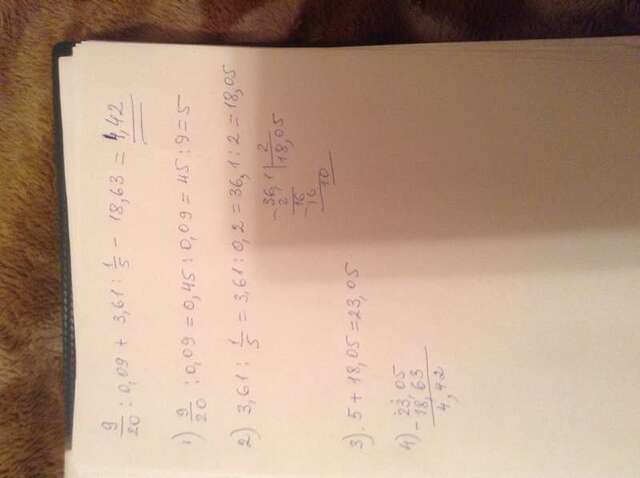 9/20 : 0,09 + 3,61 : 1/5 - 18,63 = 4,42
1) 9/20 : 0,09 = 0,45 : 0,09 = 45 : 9 = 5
2) 3,61 : 1/5 = 3,61 : 0,2 = 36,1 : 2 = 18,05
- 36,1 | 2
2 | 18,05
16
- 16
10
3). 5 + 18,05 = 23,05
4) 23,05
- 18,63
4,42